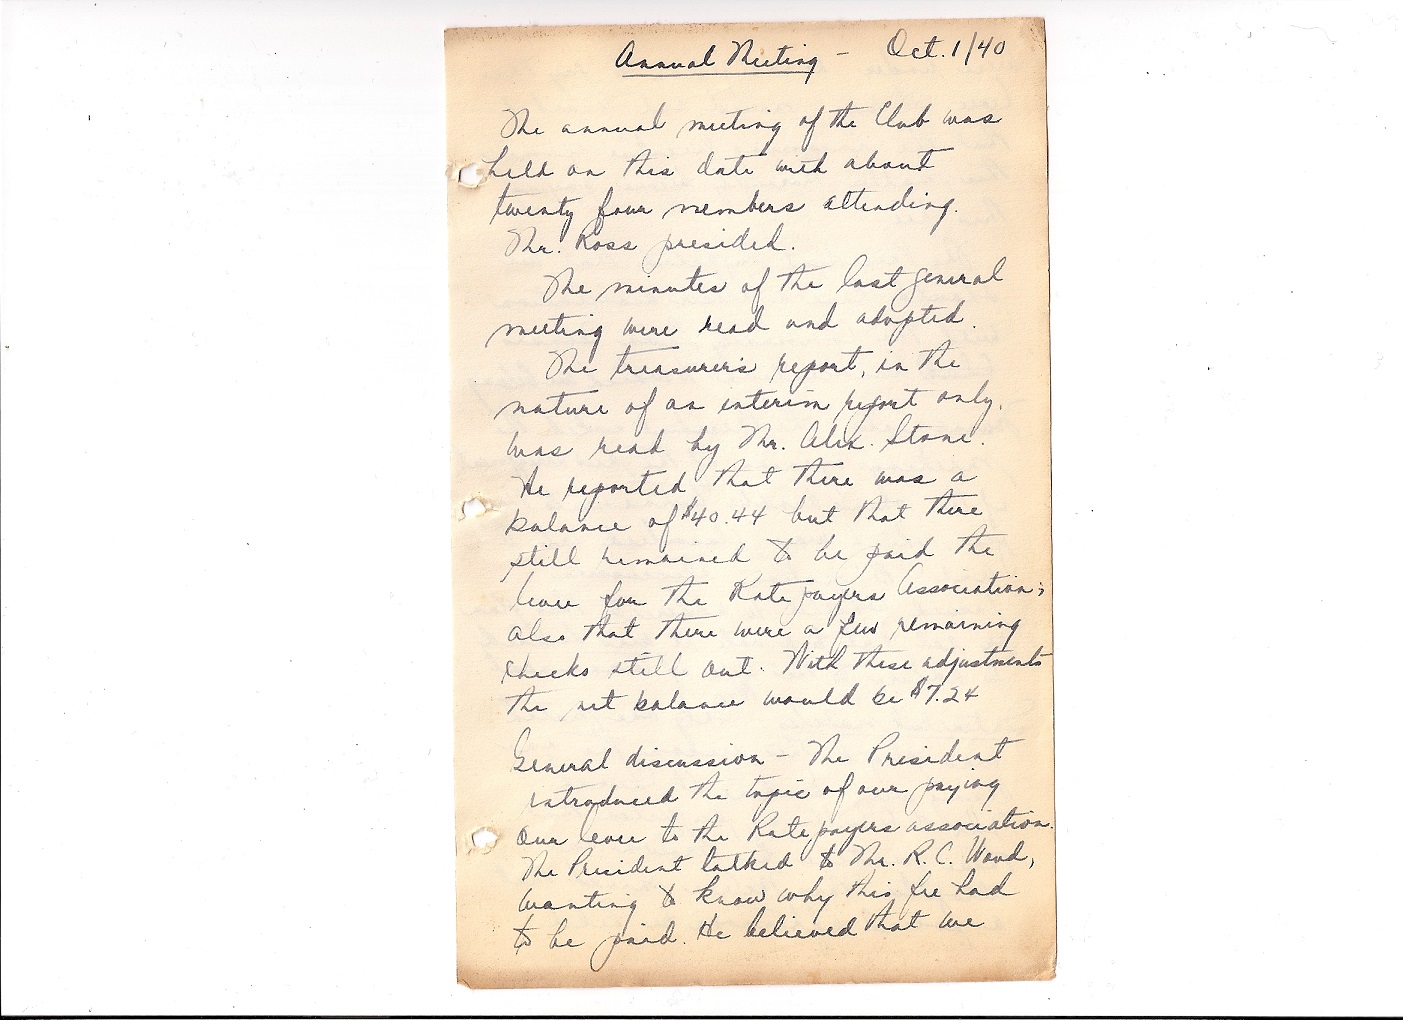 Annual Meeting - Oct. 1/40
The annual meeting of the Club was
held on this date with about
twenty four members attending.
Mr. Ross presided.
The minutes of the last general
meeting were read and adopted.
The treasurer's report, in the
nature of an interim report only,
was read by Mr. Alex. Stone.
He reported that there was a
balance of $40.44 but that there
still remained to be paid the
levee for the Ratepayers Association;
also that there were a few remaining
checks still out. With these adjustments
the net balance would be $7.24
General discussion - The President
introduced the topic of our paying
our levee to the Ratepayers association.
The President talked to Mr. R. C. Wood,
wanting to know why this fee had
to be paid. He believed that we